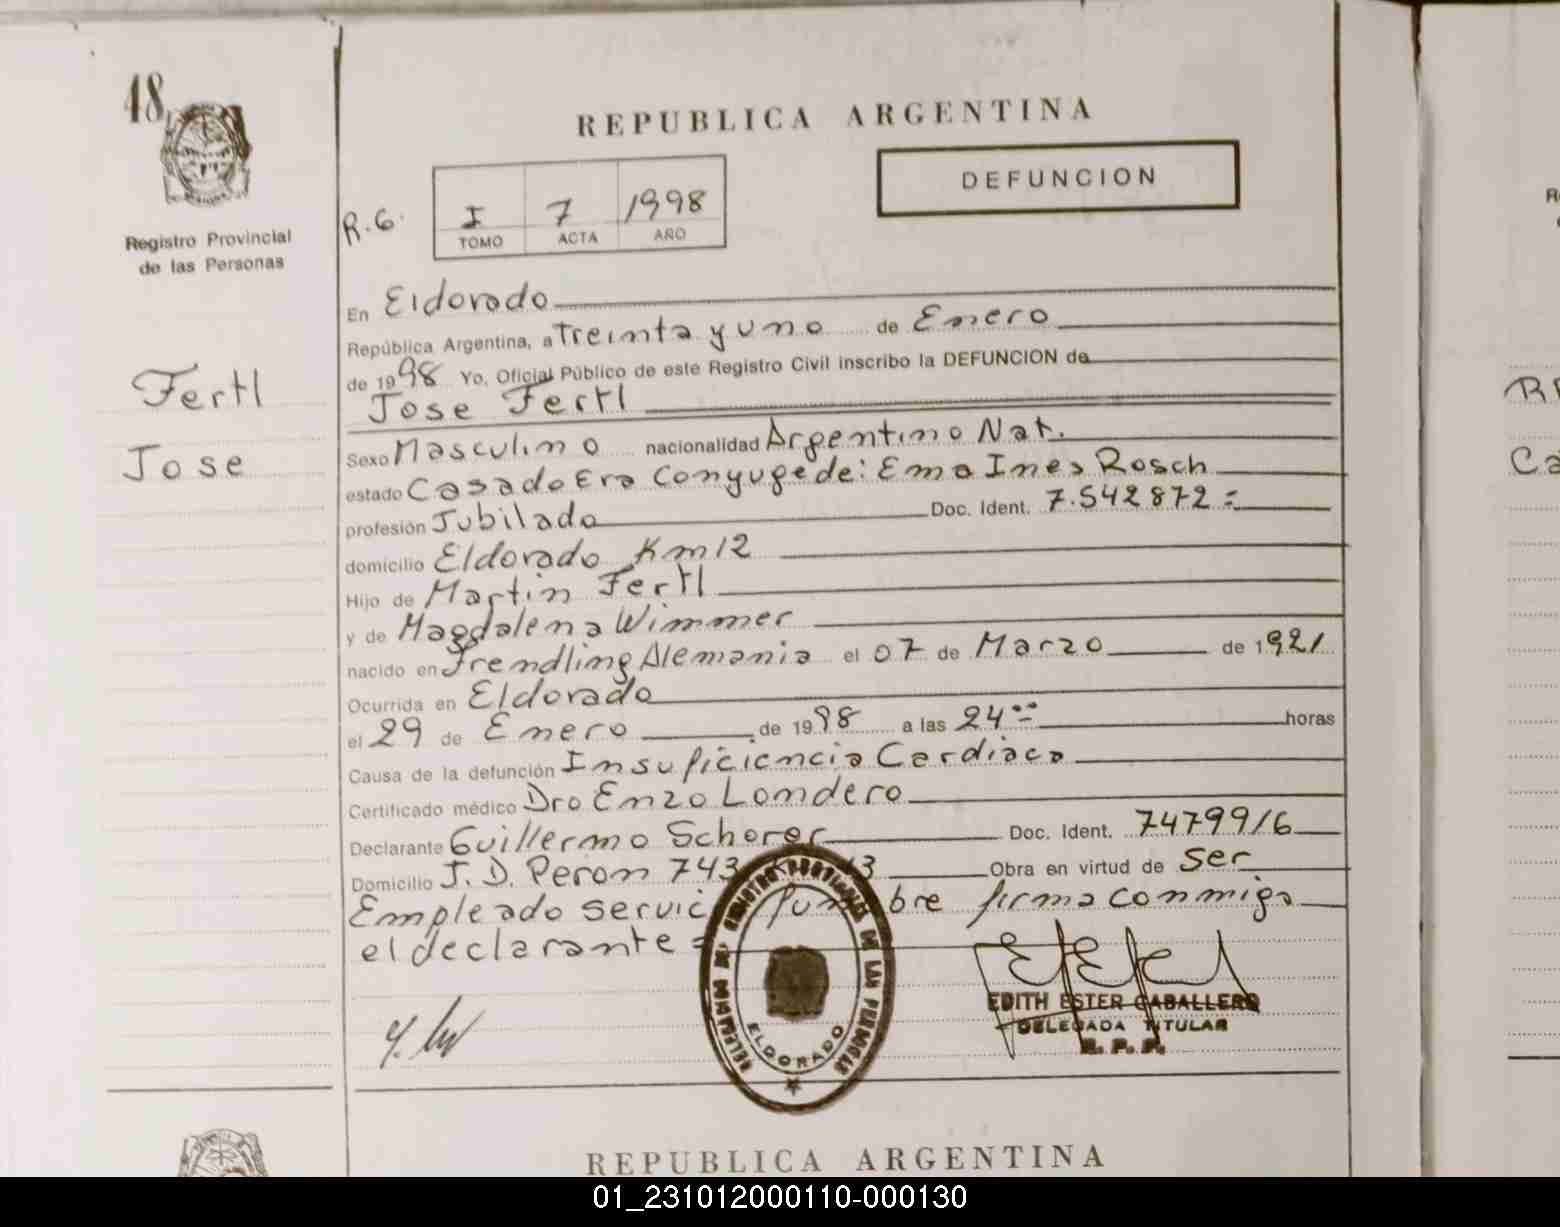 48
Registro Provincial
de las Personas
Fertl
Jose
REPUBLICA ARGENTINA
DEFUNCION
R.G.
I 7 1998
TOMO ACTA AÑO
En Eldorado
República Argentina, a Treinta y uno de Enero
de 1998 Yo, Oficial Público de este Registro Civil inscribo la DEFUNCION de
Jose Fertl
Sexo Masculino nacionalidad Argentino Nat.
estado Casado Era Conyuge de: Ema Ines Rosch
profesión Jubilado Doc. Ident. 7.542872=
domicilio Eldorado Km 12
Hijo de Martin Fertl
y de Magdalena Wimmer
nacido en Frendling Alemania el 07 de Marzo de 1921
Ocurrida en Eldorado
el 29 de Enero de 1998 a las 24 horas
Causa de la defunción Insuficiencia Cardiaca
Certificado médico Dro Enzo Londero
Declarante Guillermo Scherer Doc. Ident. 7479916
Domicilio J. D. Peron 743 Obra en virtud de Ser
Empleado servic fune bre firma conmigo
el declarante=
DELEGACION REGISTRO PROVINCIAL DE LAS PERSONAS
ELDORADO
EDITH ESTER CABALLERO
DELEGADA TITULAR
R. P. P.
REPUBLICA ARGENTINA
01_231012000110-000130